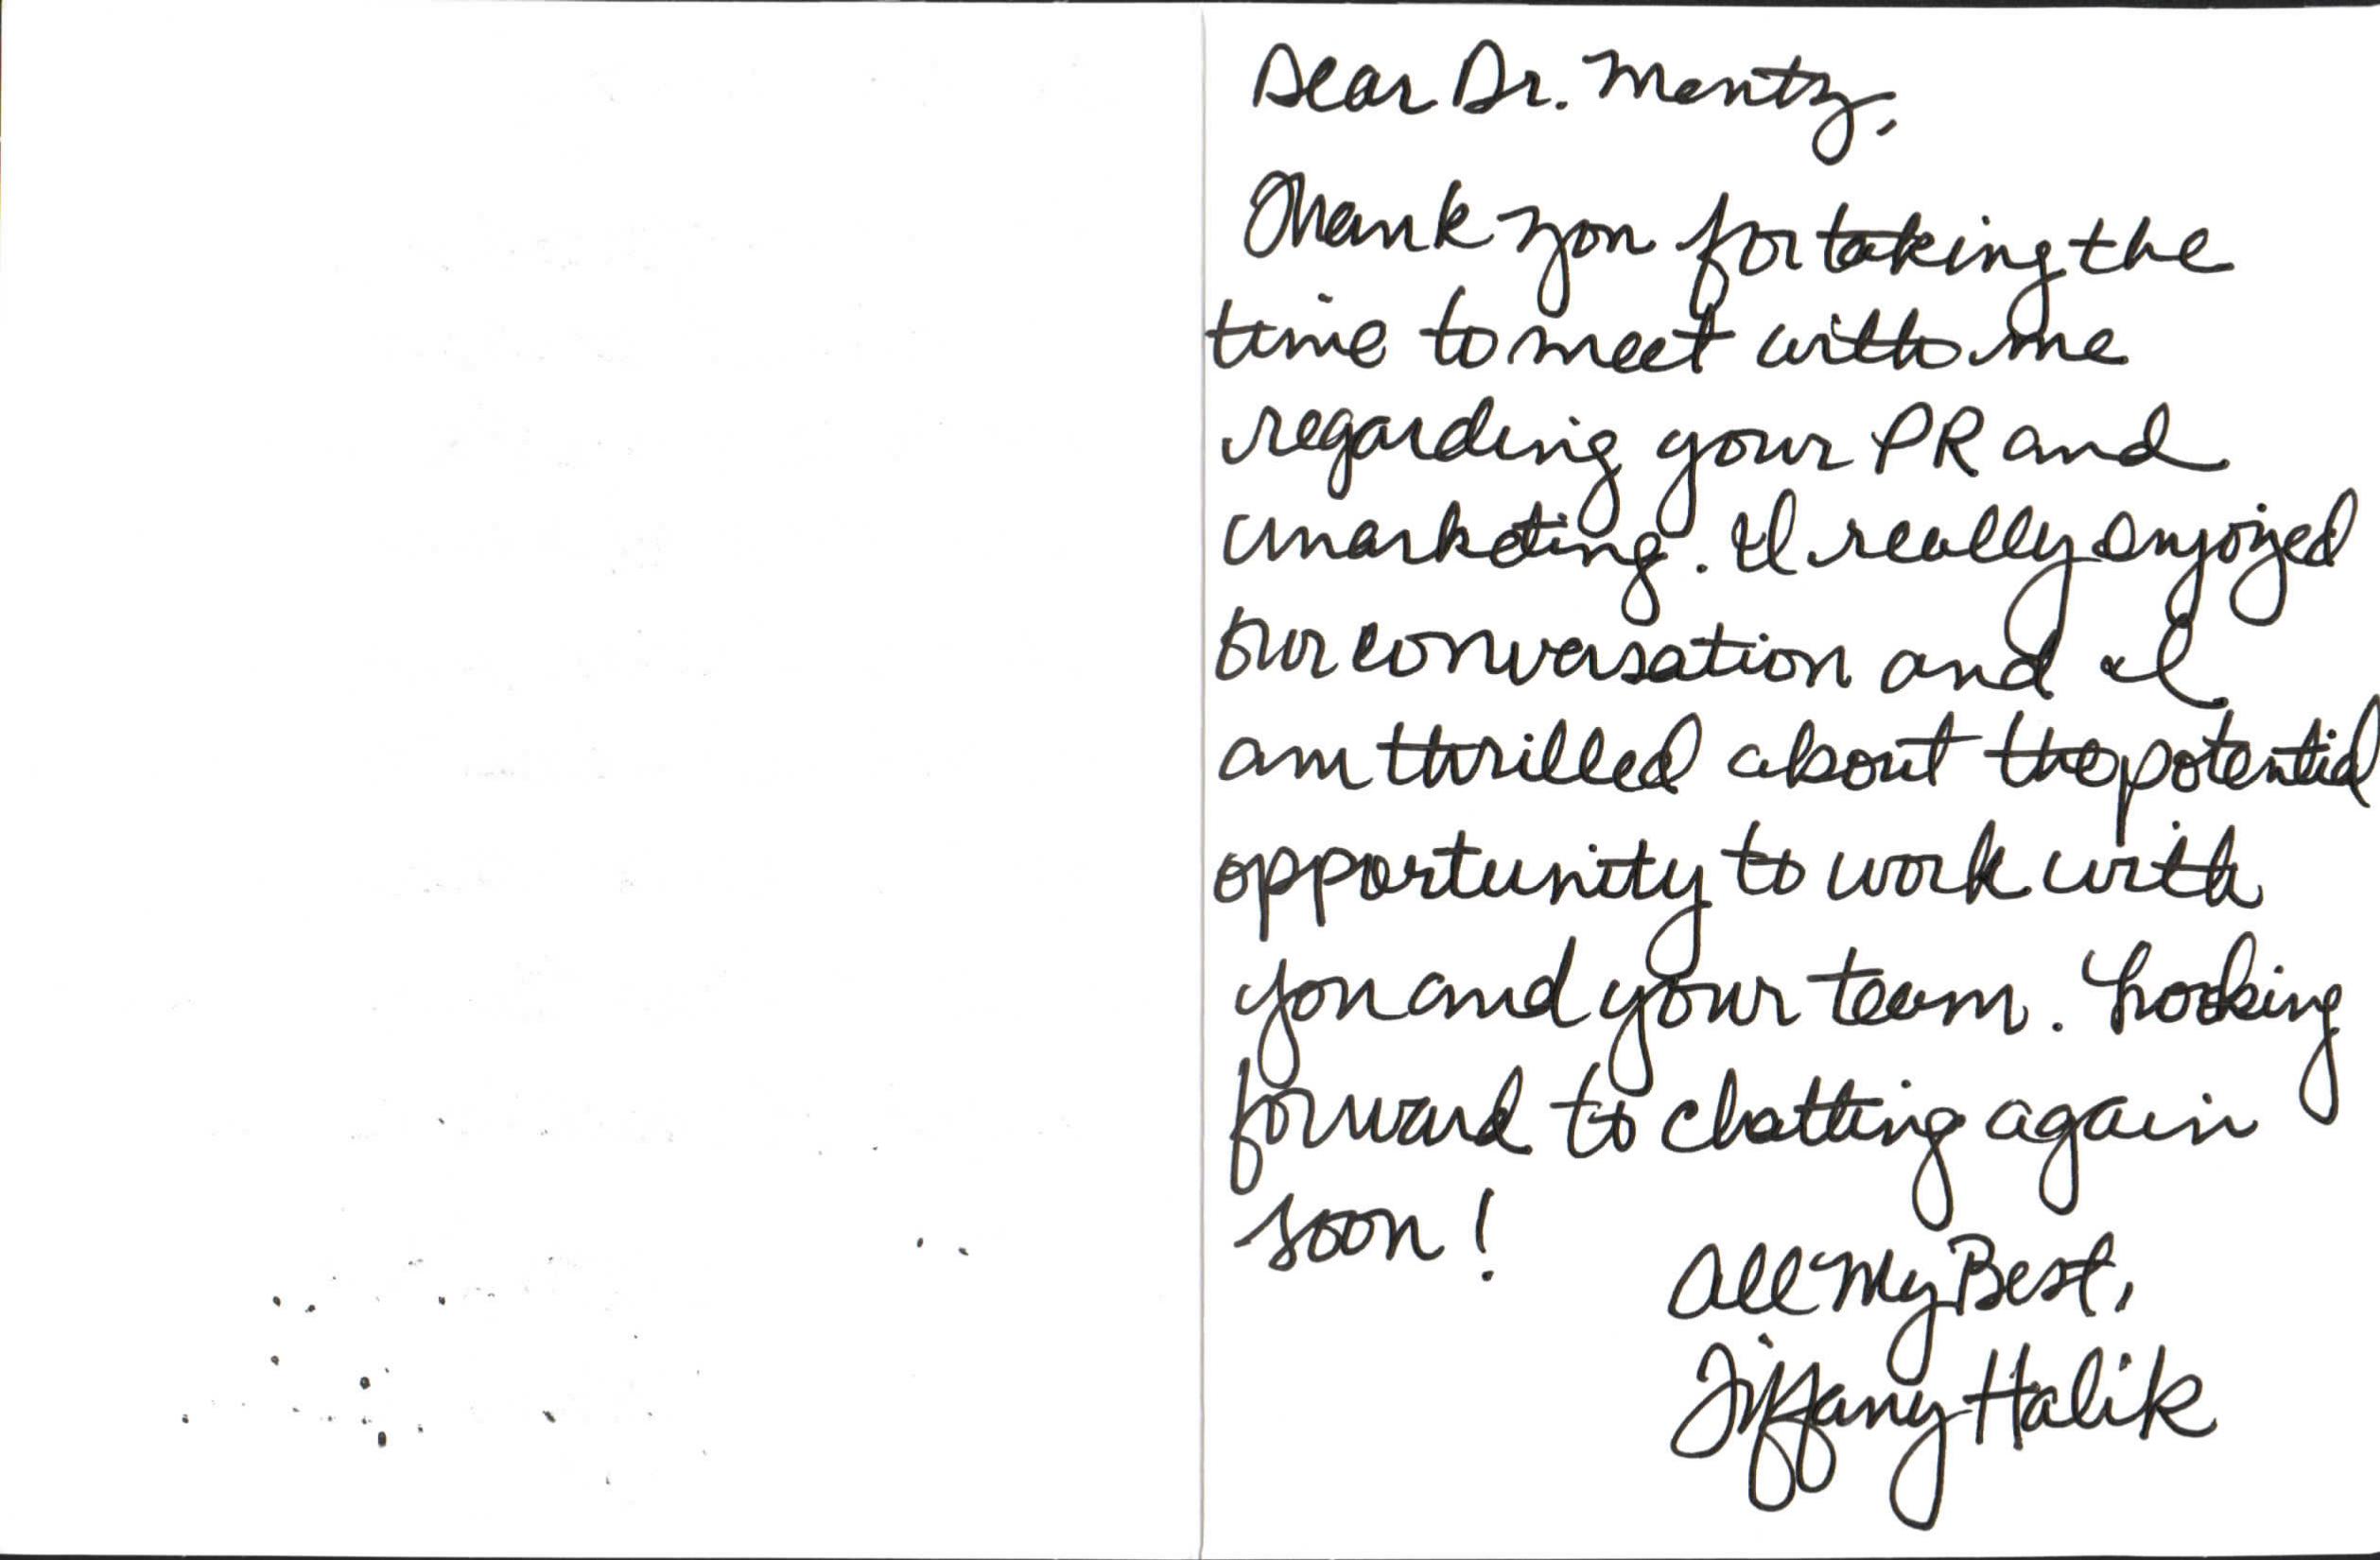 Dear Dr. Mentz,
Thank you for taking the
time to meet with me
regarding your PR and
marketing. I really enjoyed
our conversation and I
am thrilled about the potential
opportunity to work with
you and your team. Looking
forward to chatting again
soon!
All My Best,
Tiffany Halik